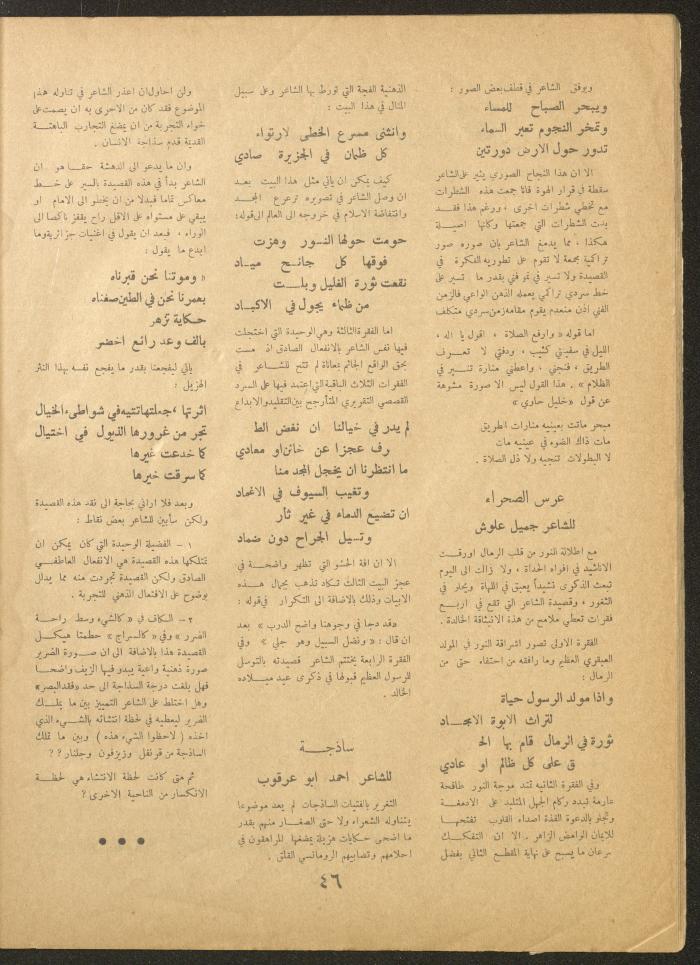 ويوفق الشاعر في قطف بعض الصور :
ويبحر الصباح للمساء
وتمخر النجوم تعبر السماء
تدور حول الارض دورتين
الا ان هذا النجاح الصوري يثير على الشاعر
سقطة في قرار الهوة فانا جمعت هذه الشطرات
مع تخطي شطرات اخرى ، ورغم هذا فقد
بدت الشطرات التي جمعتها وكأنها اصيلة
هكذا ، مما يدمغ الشاعر بان صوره صور
تراكمية مجمعة لا تقوم على تطورية الفكرة في
القصيدة ولا تسير في نمو فني بقدر ما تسير على
خط سردي تراكمي يعمله الذهن الواعي فالزمن
الفني اذن منعدم يقوم مقامه زمن سردي متكلف
اما قوله « وارفع الصلاة ، اقول يا اله ،
الليل في سفينتي كئيب ، ودفتي لا تعرف
الطريق ، فنجني ، واعطني منارة تسير في
الظلام » . هذا القول ليس الا صورة مشوهة
عن قول « خليل حاوي »
مبحر ماتت بعينيه منارات الطريق
مات ذاك الضوء في عينيه مات
لا البطولات تنجيه ولا ذل الصلاة .
عرس الصحراء
للشاعر جميل علوش
مع اطلالة النور من قلب الرمال اورقت
الاناشيد في افواه الحداة ، ولا زالت الى اليوم
تبعث الذكرى نشيداً يعبق في اللهاة ويحلو في
الثغور ، وقصيدة الشاعر التي تقع في اربع
فقرات تعطي ملامح من هذة الانبثاقة الخالدة .
الفقرة الاولى تصور اشراقة النور في المولد
العبقري العظيم وما رافقه من احتفاء حتى من
الرمال :
واذا مولد الرسول حياة
لتراث الابوة الامجاد
ثورة في الرمال قام بها الحـ
ـق على كل ظالم او عادي
وفي الفقرة الثانيه تند موجة النور طافحة
عارمة تبدد ركام الجهل المتلبد على الادمغة
وتجلو بالدعوة الفذة اصداء القلوب تفتحها
للايمان الوامض الزاهر . الا ان التفكك
سرعان ما يسبح على نهاية المقطع الثاني بفضل
الذهنية الفجة التي تورط بها الشاعر وعلى سبيل
المثال في هذا البيت :
وانثنى مسرع الخطى لارتواء
كل ظمآن في الجزيرة صادي
كيف يمكن ان يأتي مثل هذا البيت بعد
ان وصل الشاعر في تصويره ترعرع المجد
وانتفاضة الاسلام في خروجه الى العالم الى قوله:
حومت حولها النسور وهزت
فوقها كل جانح مياد
نقعت ثورة الغليل وبلت
من ظماء يجول في الاكباد
اما الفقرة الثالثة وهي الوحيدة التي اختجلت
فيها نفس الشاعر بالانفعال الصادق اذ مست
بحق الواقع الجاثم بمعاناة لم تتح للشاعر في
الفقرات الثلاث الباقية التي اعتمد فيها على السرد
القصصي التقريري المتأرجح بين التقليد والابداع
لم يدر في خيالنا ان نغض الط
رف عجزا عن خائن او معادي
ما انتظرنا ان يخجل المجد منا
وتغيب السيوف في الاغماد
ان تضيع الدماء في غير ثأر
وتسيل الجراح دون ضماد
الا ان افة الحشو التي تظهر واضحة في
عجز البيت الثالث تكاد تذهب بجمال هذه
الابيات وذلك بالاضافة الى التكرار في قوله :
«قد دجا في وجوهنا واضح الدرب » بعد
ان قال : « ونضل السبيل وهو جلي » وفي
الفقرة الرابعة يختتم الشاعر قصيدته بالتوسل
للرسول العظيم قبولها في ذكرى عيد ميلاده
الخالد .
ساذجة
للشاعر احمد ابو عرقوب
التغرير بالفتيات الساذجات لم يعد موضوعا
يتناوله الشعراء ولا حتى الصغار منهم بقدر
ما اضحى حكايات هزيلة يمضغها المراهقون في
احلامهم وتصابيهم الرومانسي القلق .
ولن احاول ان اعذر الشاعر في تناوله هذا
الموضوع فقد كان من الاحرى به ان يصمت على
خواء التجربة من ان يمضغ التجارب الباهتة
القديمة قدم سذاجة الانسان .
وان ما يدعو الى الدهشة حقا هو ان
الشاعر بدأ في هذه القصيدة بالسير على خط
معاكس تماما فبدلا من ان يخطو الى الامام او
يبقى على مستواه على الاقل راح يقفز ناكصا الى
الوراء ، فبعد ان يقول في اغنيات جزائرية وما
ابدع ما يقول :
« وموتنا نحن قبرناه
بعمرنا نحن في الطين صغناه
حكاية تزهر
بالف وعد رائع اخضر
يأتي ليفجعنا بقدر ما يفجع نفسه بهذا النثر
الهزيل :
اثرتها ، جعلتها تتيه في شواطىء الخيال
تجر من غرورها الذيول في اختيال
كما خدعت غيرها
كما سرقت خيرها
وبعد فلا اراني بحاجة الى نقد هذه القصيدة
ولكن سأبين للشاعر بعض نقاط :
١ – الفضيلة الوحيدة التي كان يمكن ان
تمتلكها هذه القصيدة هي الانفعال العاطفي
الصادق ولكن القصيدة تجردت منه مما يدلل
بوضوح على الافتعال الذهني للتجربة .
٢ – الكاف في « كالشيء وسط راحة
الضرر » وفي « كالسراج » حطمتا هيكل
القصيدة هذا بالاضافة الى ان صورة الضرير
صورة ذهنية واعية يبدو فيها الزيف واضحا
فهل بلغت درجة السذاجة الى حد « فقد البصر»
وهل اختلط على الشاعر التمييز بين ما يملك
الضرير ليعطيه في لحظة انتشائه بالشيء الذي
اخذه ( لاحظوا الشيء هذه ) وبين ما تملك
الساذجة من قرنفل وزيزفون وجلنار ? ?
ثم متى كانت لحظة الانتشاء هي لحظة
الانكسار من الناحية الاخرى ?
● ● ●
٤٦